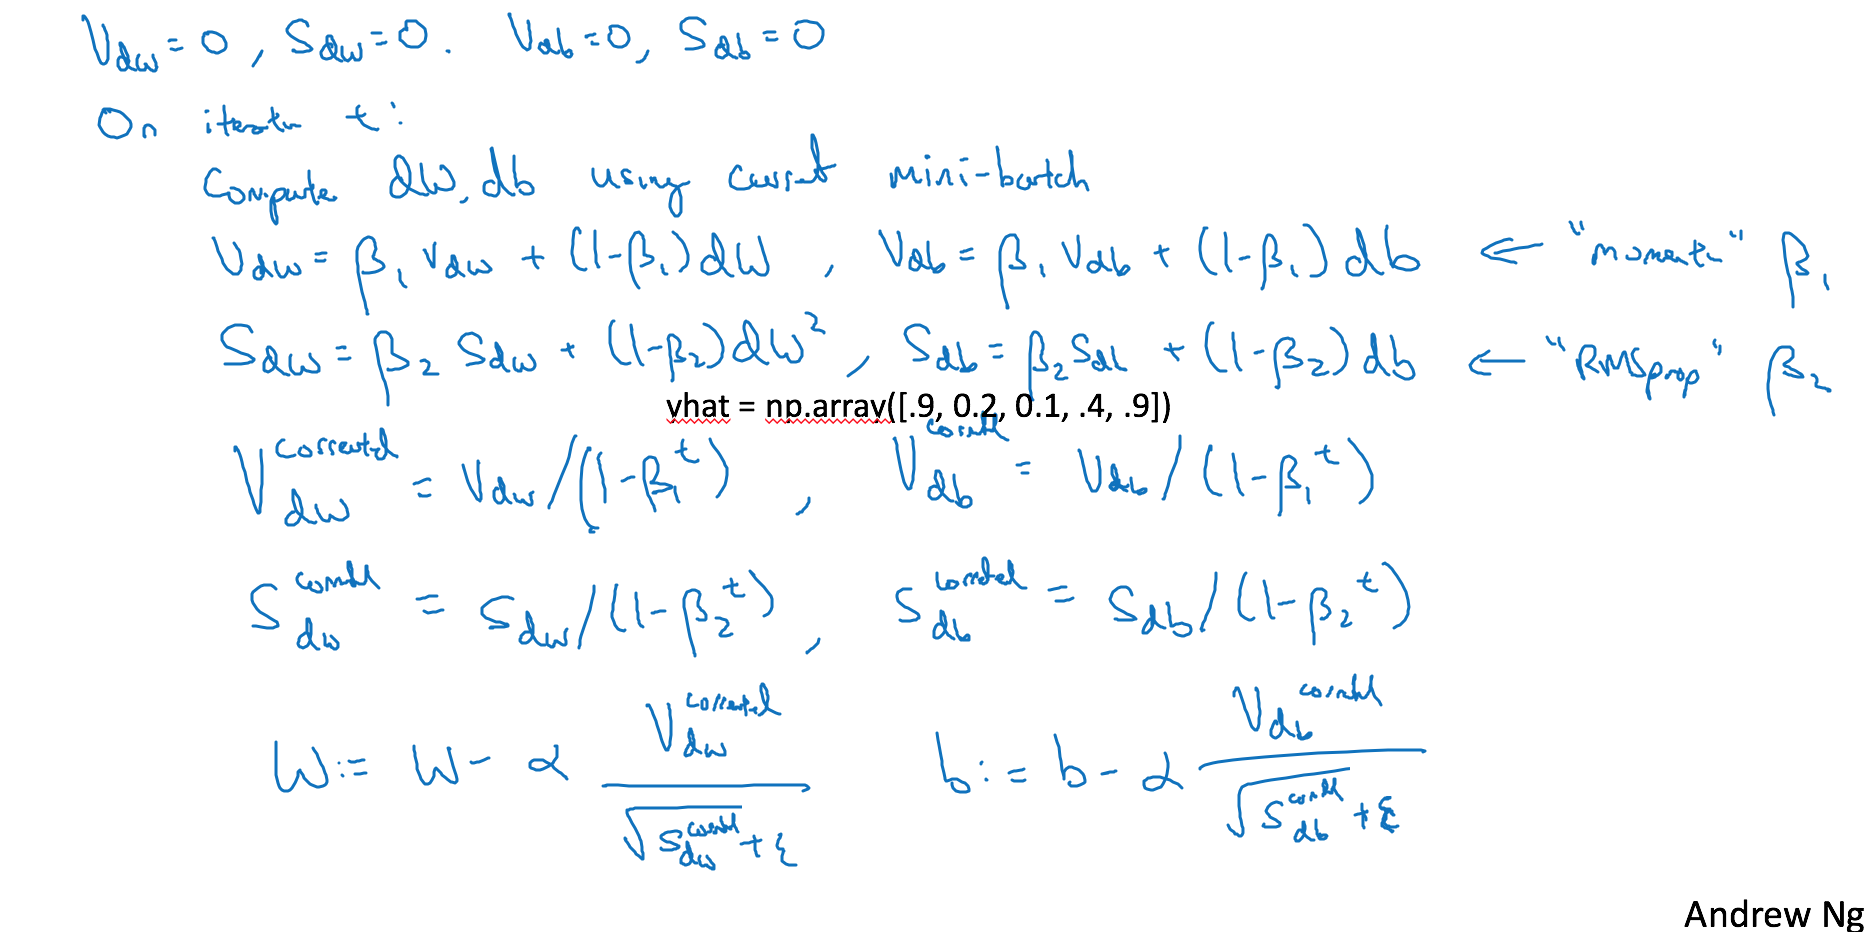 V_dw = 0, S_dw = 0. V_db = 0, S_db = 0
On iteratn t:
Compute dW, db using current mini-batch
V_dw = β₁ V_dw + (1-β₁) dW, V_db = β₁ V_db + (1-β₁) db ← "momentn" β₁
S_dw = β₂ S_dw + (1-β₂) dW², S_db = β₂ S_db + (1-β₂) db ← "RMSprop" β₂
yhat = np.array([.9, 0.2, 0.1, .4, .9])
V_dw^corrected = V_dw / (1-β₁^t), V_db^corrected = V_db / (1-β₁^t)
S_dw^corrected = S_dw / (1-β₂^t), S_db^corrected = S_db / (1-β₂^t)
W := W - α V_dw^corrected / (√S_dw^corrected + ε) b := b - α V_db^corrected / (√S_db^corrected + ε)
Andrew Ng